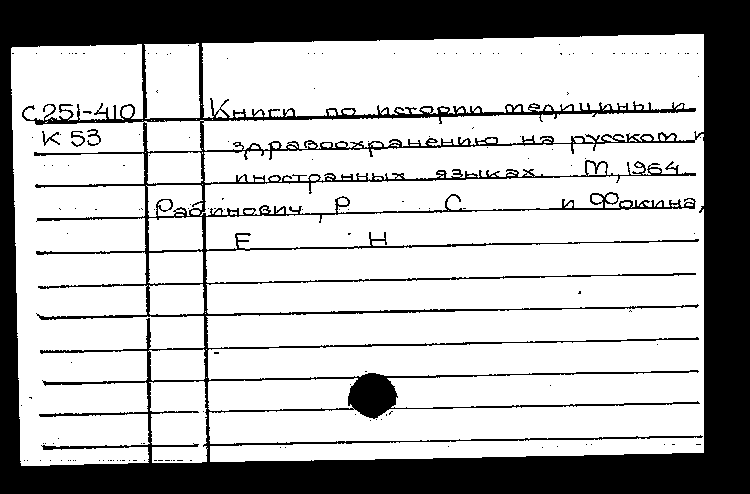 С251-410 Книги по истории медицины и
К 53 здравоохранению на русском и
иностранных языках. М., 1964
Рабинович, Р С и Фокина,
Е Н